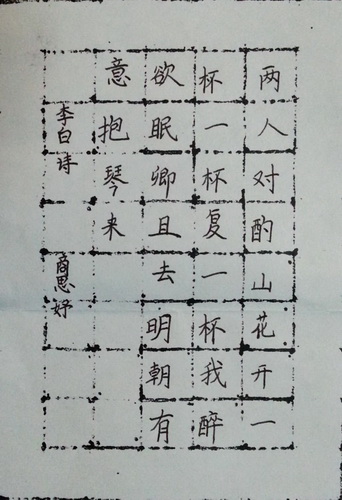 两人对酌山花开一
杯一杯复一杯我醉
欲眠卿且去明朝有
意抱琴来
李白诗
商思妤